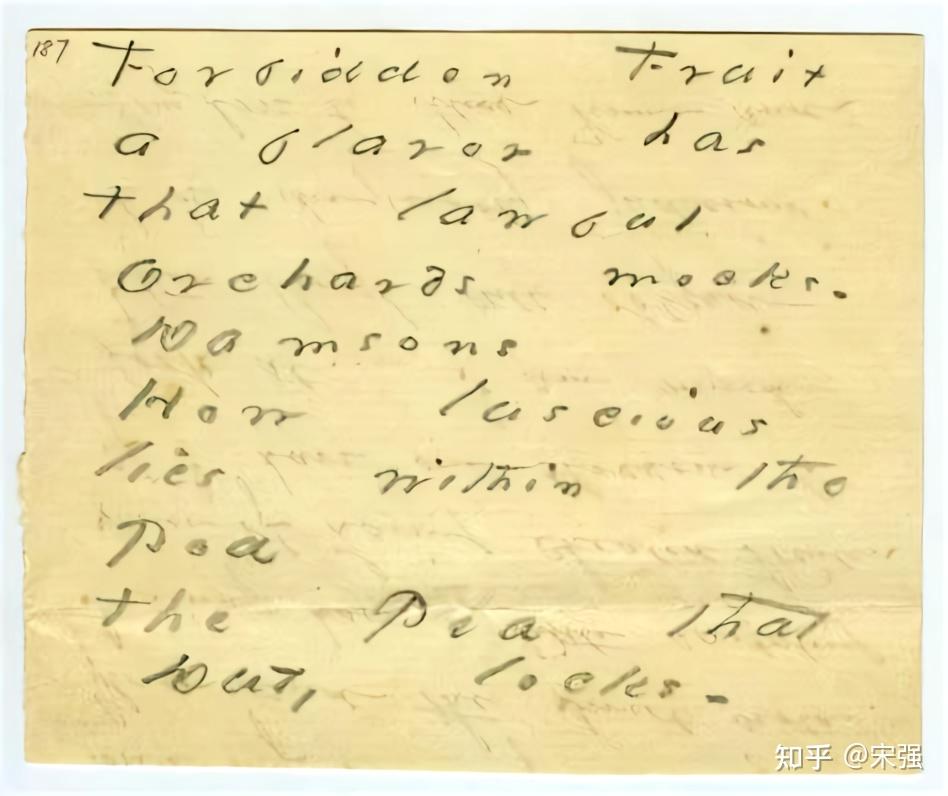 187
Forbidden Fruit
a flavor has
that lawful
Orchards mocks.
Damsons
How luscious
lies within the
Pod
the Pea that
Duty locks -
知乎 @宋强